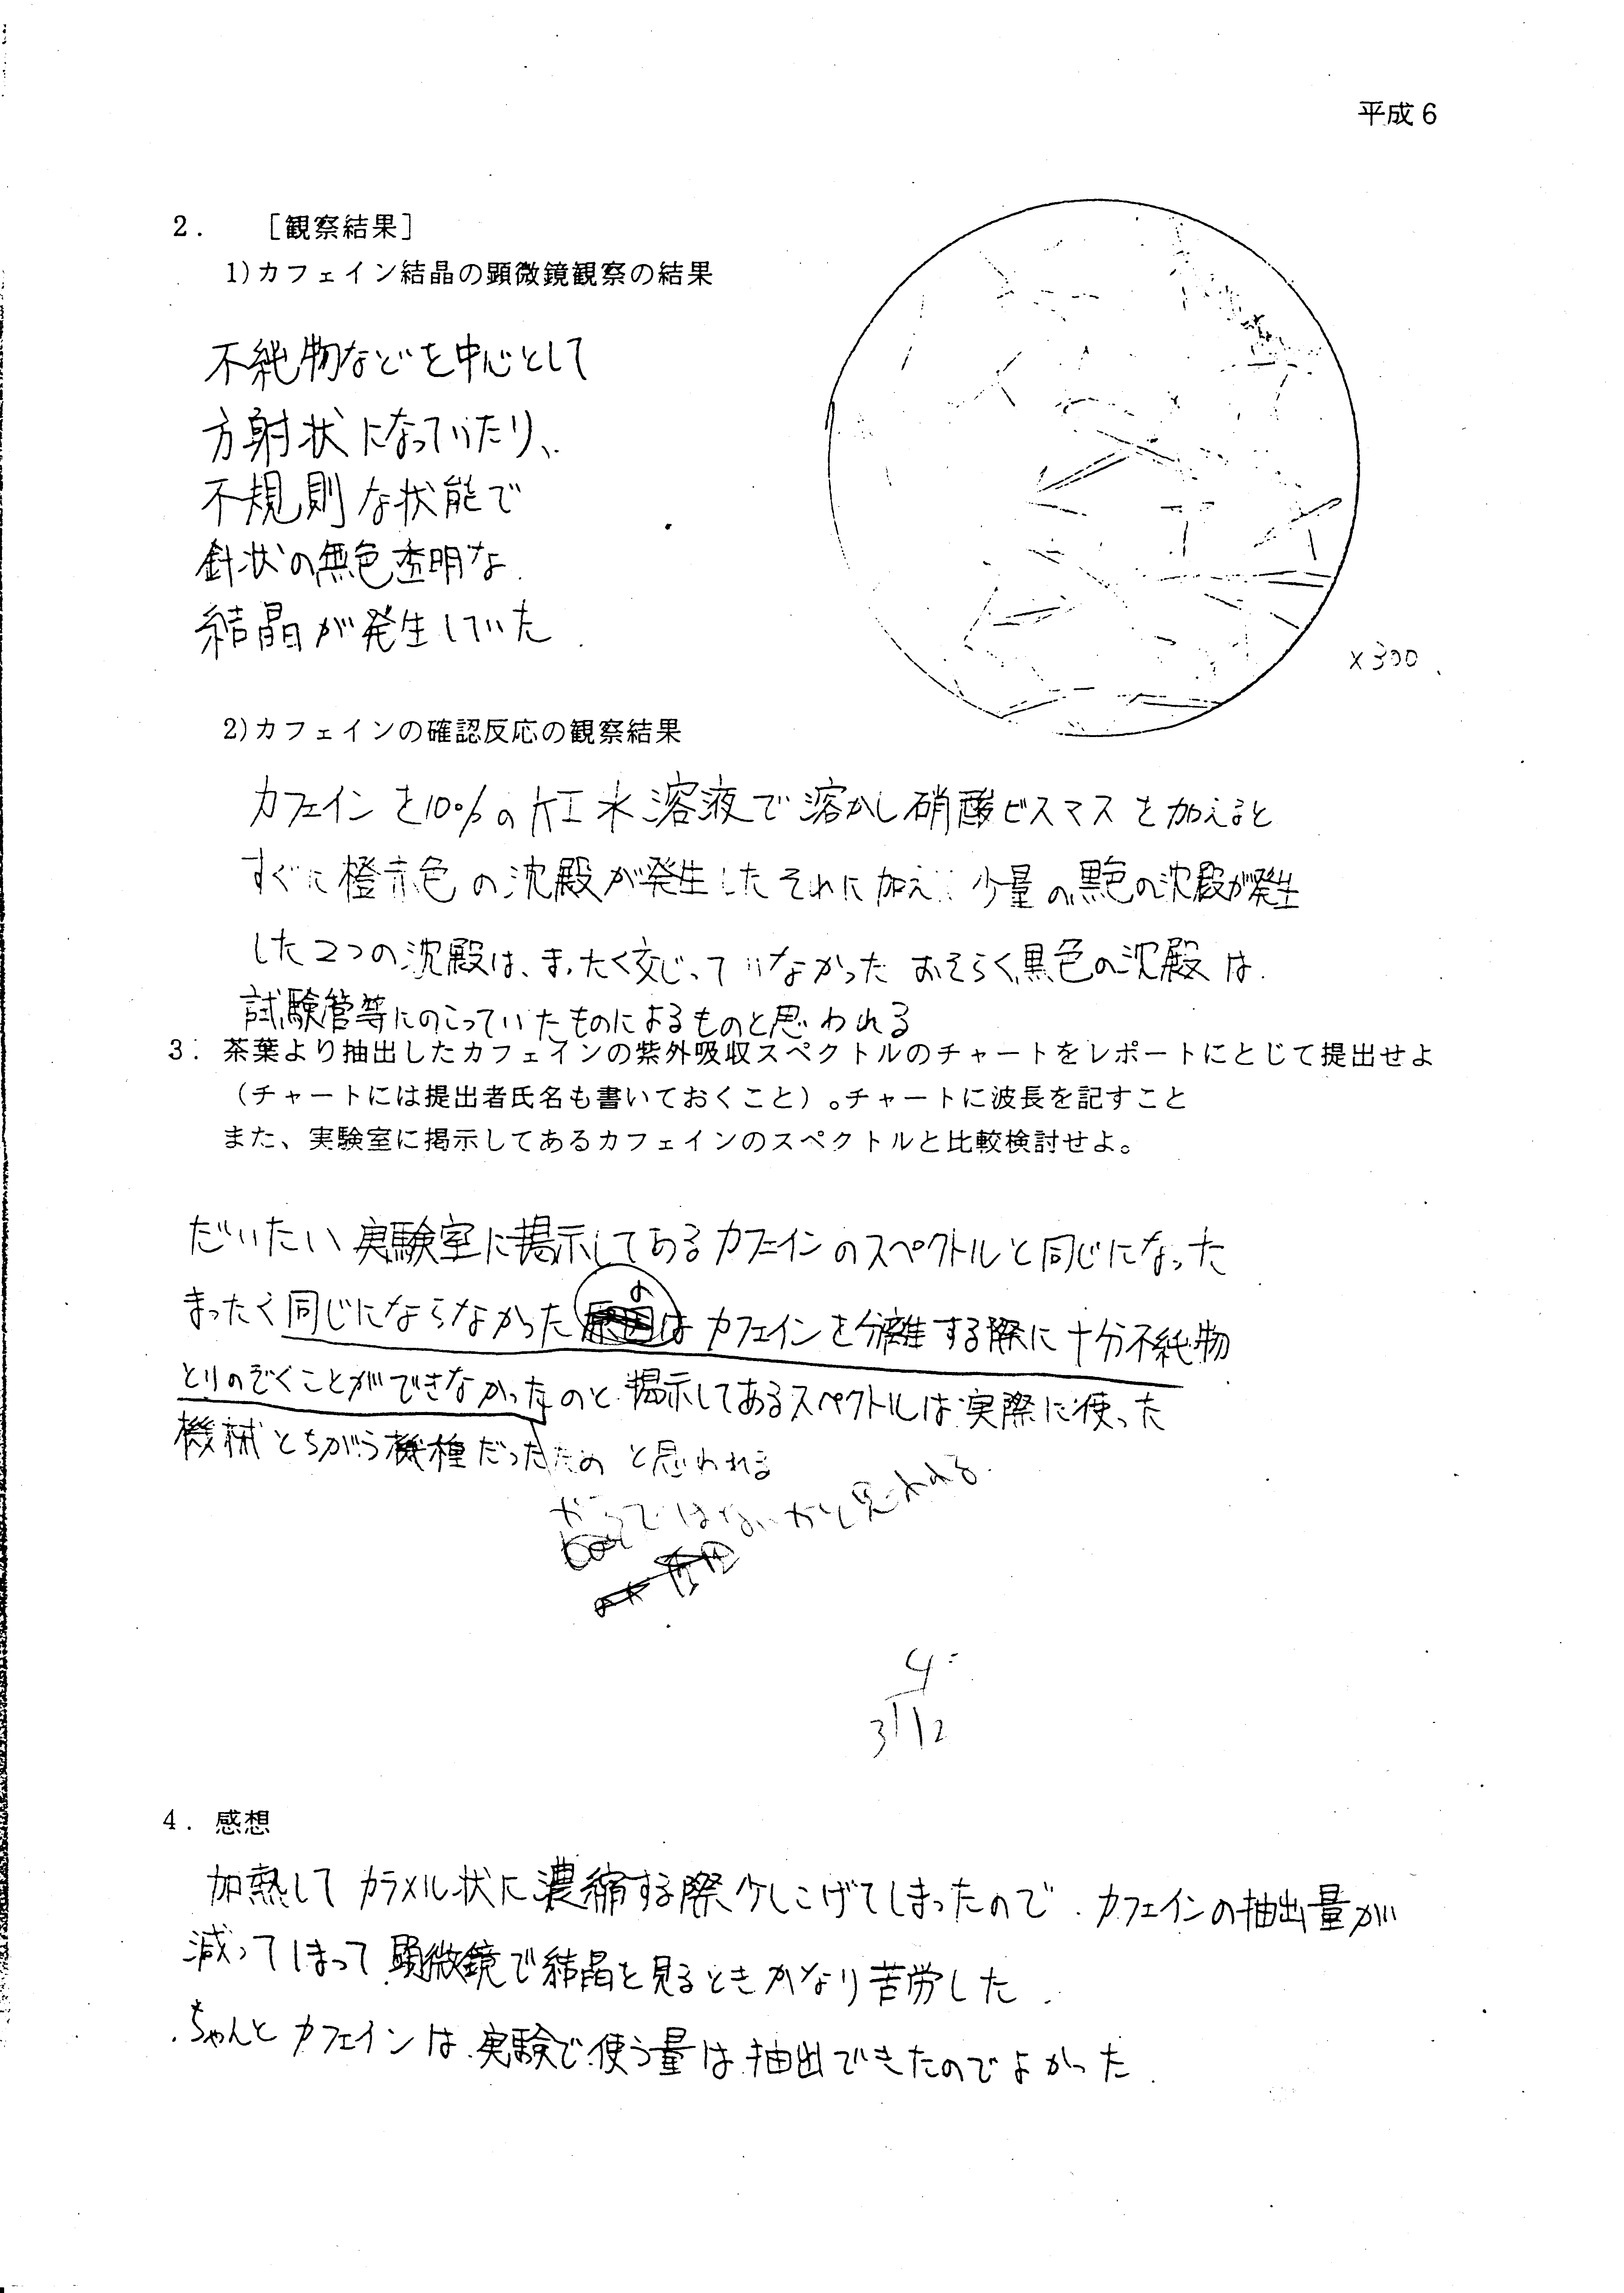 平成6
2. ［観察結果］
1)カフェイン結晶の顕微鏡観察の結果
不純物などを中心として
方射状になっていたり、
不規則な状能で
針状の無色透明な
結晶が発生していた
×300
2)カフェインの確認反応の観察結果
カフェインを10%のKI水溶液で溶かし硝酸ビスマスを加えると
すぐに橙赤色の沈殿が発生したそれに加え 少量の黒色の沈殿が発生
した2つの沈殿は、まったく交じっていなかった おそらく黒色の沈殿は
試験管等にのこっていたものによるものと思われる
3. 茶葉より抽出したカフェインの紫外吸収スペクトルのチャートをレポートにとじて提出せよ
（チャートには提出者氏名も書いておくこと）。チャートに波長を記すこと
また、実験室に掲示してあるカフェインのスペクトルと比較検討せよ。
だいたい実験室に掲示してあるカフェインのスペクトルと同じになった
まったく同じにならなかった原因は カフェインを分離する際に十分不純物
とりのぞくことができなかったのと 掲示してあるスペクトルは実際に使った
機械とちがう機種だったため と思われる
からではないかと思われる
4. 感想
加熱してカラメル状に濃縮する際少しこげてしまったので カフェインの抽出量が
減ってしまって顕微鏡で結晶を見るときかなり苦労した
ちゃんとカフェインは実験で使う量は抽出できたのでよかった